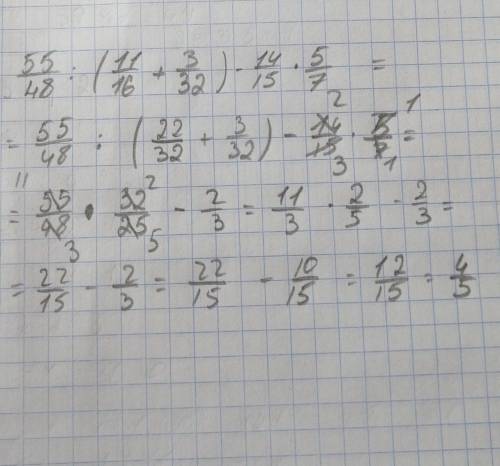 55/48 : (11/16 + 3/32) - 14/15 · 5/7 =
= 55/48 : (22/32 + 3/32) - 14/15 · 5/7 = 2 1 3 1
= 55/48 · 32/25 - 2/3 = 11/3 · 2/5 - 2/3 = 11 2 3 5
= 22/15 - 2/3 = 22/15 - 10/15 = 12/15 = 4/5